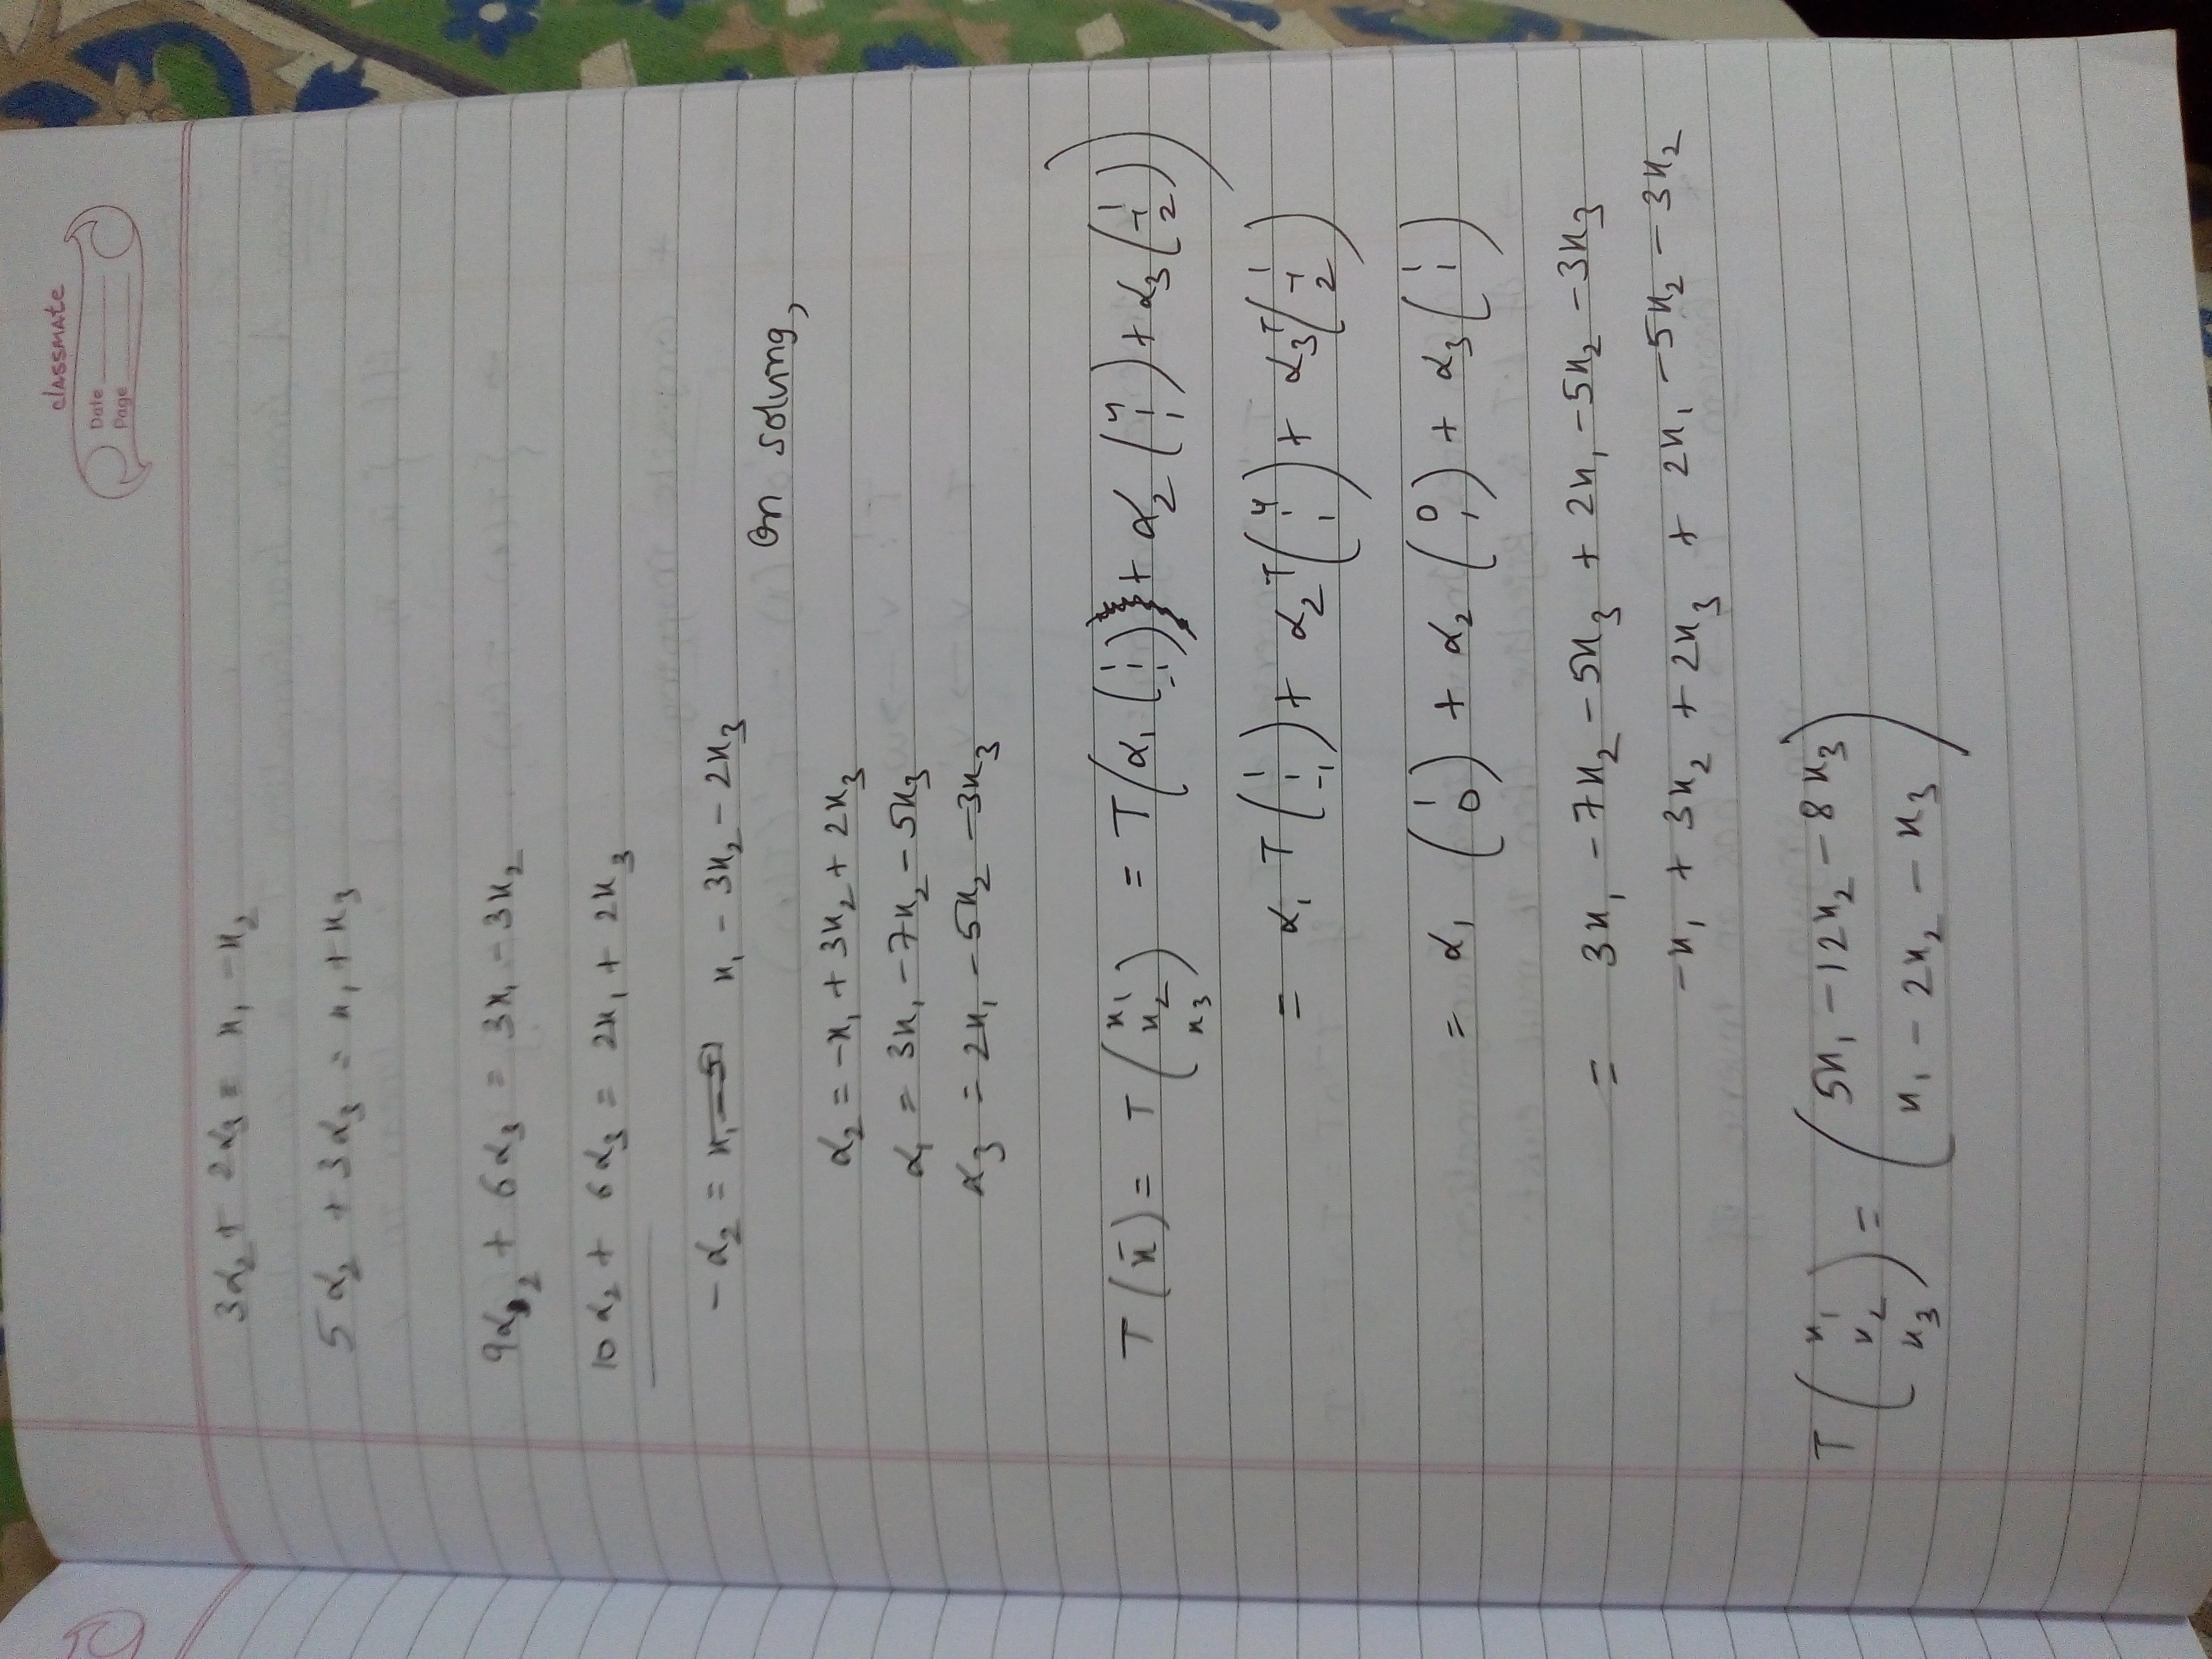 classmate
Date
Page
3α₂ + 2α₃ = x₁ - x₂
5α₂ + 3α₃ = x₁ + x₃
9α₂ + 6α₃ = 3x₁ - 3x₂
10α₂ + 6α₃ = 2x₁ + 2x₃
-α₂ = x₁ - 3x₂ - 2x₃
On solving,
α₂ = -x₁ + 3x₂ + 2x₃
α₁ = 3x₁ - 7x₂ - 5x₃
α₃ = 2x₁ - 5x₂ - 3x₃
T(x̄) = T(x₁ x₂ x₃) = T(α₁(1 1 -1) + α₂(4 1 1) + α₃(1 -1 2))
= α₁ T(1 1 -1) + α₂ T(4 1 1) + α₃ T(1 -1 2)
= α₁ (1 0) + α₂ (0 1) + α₃ (1 1)
= 3x₁ - 7x₂ - 5x₃ + 2x₁ - 5x₂ - 3x₃
-x₁ + 3x₂ + 2x₃ + 2x₁ - 5x₂ - 3x₂
T(x₁ x₂ x₃) = (5x₁ - 12x₂ - 8x₃
x₁ - 2x₂ - x₃)